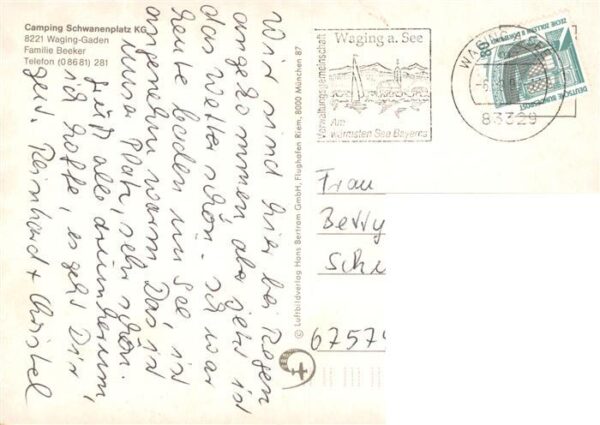 Camping Schwanenplatz KG
8221 Waging-Gaden
Familie Beeker
Telefon (0 86 81) 281
Wir sind hier bei Regen
angekommen, aber jetzt ist
das Wetter schön. Ich war
heute baden im See, ist
angenehm warm. Das ist
unser Platz, sehr schön.
Fuß alle drumherum,
ich hoffe, es geht Dir
gut. Reinhard + Christel
© Luftbildverlag Hans Bertram GmbH, Flughafen Riem, 8000 München 87
Verwaltungsgemeinschaft
Waging a. See
Am
wärmsten See Bayerns
WAGING
83329
DEUTSCHE BUNDESPOST
Frau
Betty
Sche
67574